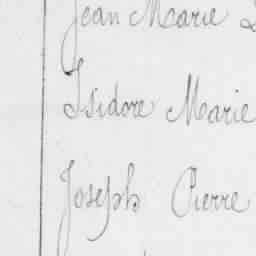 Jean Marie
Isidore Marie
Joseph Pierre